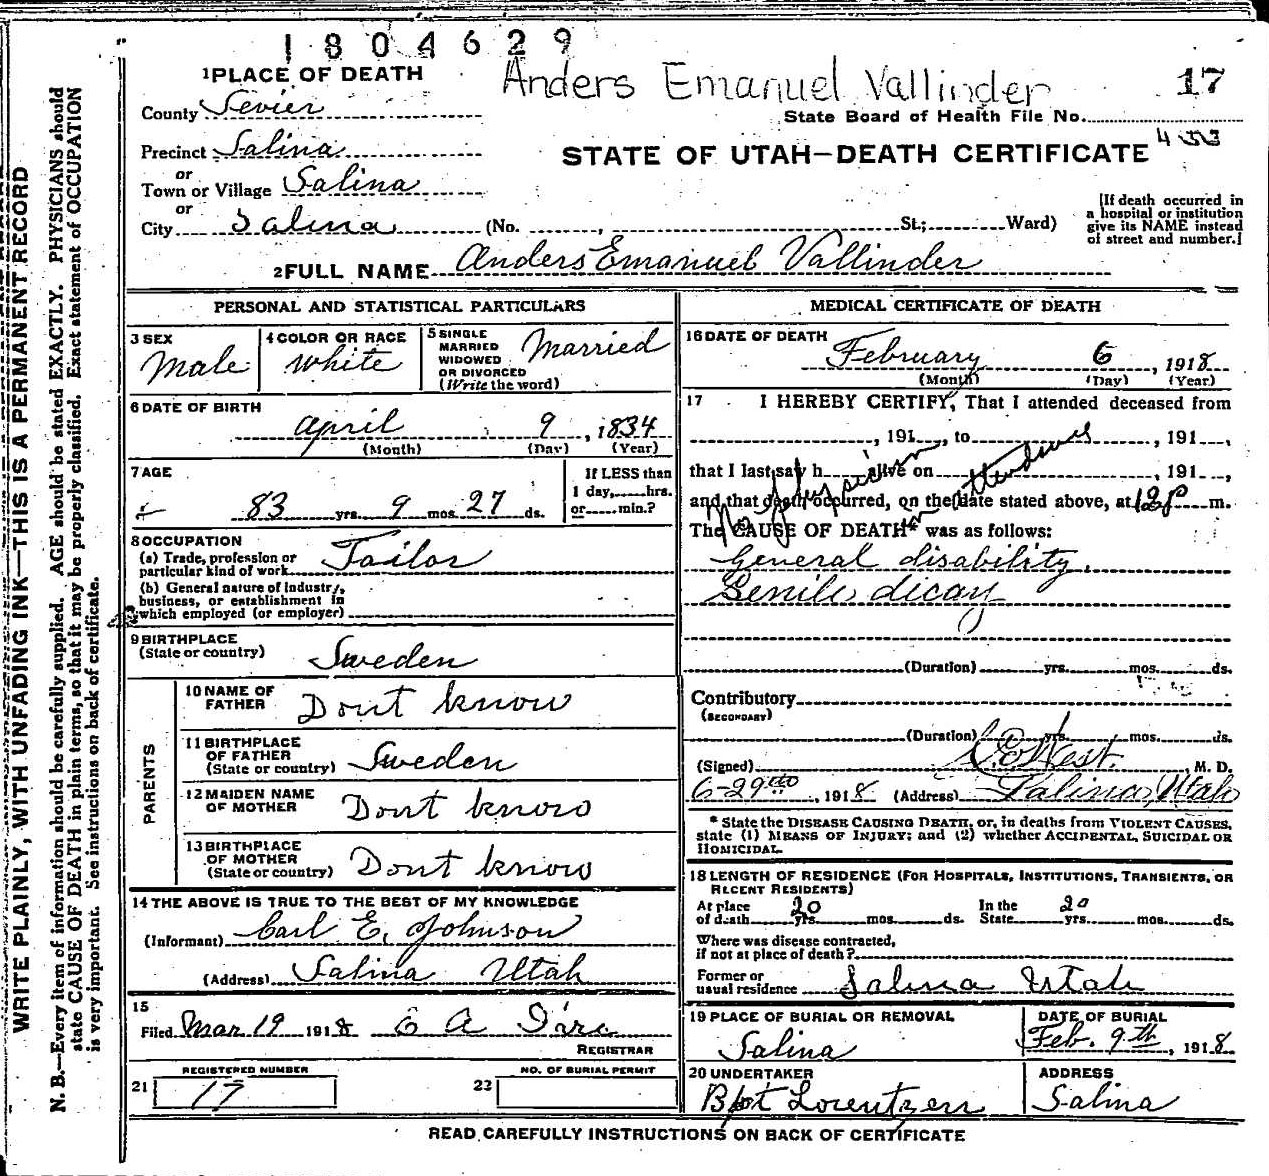 1804629
1 PLACE OF DEATH
Anders Emanuel Vallinder
17
County Sevier
State Board of Health File No.
433
Precinct Salina
STATE OF UTAH—DEATH CERTIFICATE
or
Town or Village Salina
or
City Salina (No. , St.; Ward)
[If death occurred in
a hospital or institution
give its NAME instead
of street and number.]
2 FULL NAME Anders Emanuel Vallinder
PERSONAL AND STATISTICAL PARTICULARS
3 SEX
Male
4 COLOR OR RACE
White
5 SINGLE
MARRIED
WIDOWED
OR DIVORCED
(Write the word)
Married
6 DATE OF BIRTH
April 9, 1834
(Month) (Day) (Year)
7 AGE
83 yrs. 9 mos. 27 ds.
If LESS than
1 day, hrs.
or min.?
8 OCCUPATION
(a) Trade, profession or
particular kind of work Tailor
(b) General nature of Industry,
business, or establishment in
which employed (or employer)
9 BIRTHPLACE
(State or country)
Sweden
PARENTS
10 NAME OF
FATHER
Dont know
11 BIRTHPLACE
OF FATHER
(State or country)
Sweden
12 MAIDEN NAME
OF MOTHER
Dont know
13 BIRTHPLACE
OF MOTHER
(State or country)
Dont know
14 THE ABOVE IS TRUE TO THE BEST OF MY KNOWLEDGE
(Informant) Carl E. Johnson
(Address) Salina Utah
15
Filed Mar 19 1918 E A
REGISTRAR
REGISTERED NUMBER
21 17
NO. OF BURIAL PERMIT
22
MEDICAL CERTIFICATE OF DEATH
16 DATE OF DEATH
February 6, 1918
(Month) (Day) (Year)
17 I HEREBY CERTIFY, That I attended deceased from
, 191 , to , 191 ,
that I last saw h alive on , 191 ,
and that death occurred, on the date stated above, at 12 P m.
The CAUSE OF DEATH* was as follows:
No physician in attendance
General disability.
Senile dicay
(Duration) yrs. mos. ds.
Contributory
(SECONDARY)
(Duration) yrs. mos. ds.
(Signed) West. , M. D.
6-29th, 1918 (Address) Salina, Utah
* State the DISEASE CAUSING DEATH, or, in deaths from VIOLENT CAUSES,
state (1) MEANS OF INJURY; and (2) whether ACCIDENTAL, SUICIDAL OR
HOMICIDAL.
18 LENGTH OF RESIDENCE (FOR HOSPITALS, INSTITUTIONS, TRANSIENTS, OR
RECENT RESIDENTS)
At place
of death 20 yrs. mos. ds.
In the
State 20 yrs. mos. ds.
Where was disease contracted,
if not at place of death?
Former or
usual residence Salina Utah
19 PLACE OF BURIAL OR REMOVAL
Salina
DATE OF BURIAL
Feb. 9th, 1918
20 UNDERTAKER
Lorentzen
ADDRESS
Salina
READ CAREFULLY INSTRUCTIONS ON BACK OF CERTIFICATE
WRITE PLAINLY, WITH UNFADING INK—THIS IS A PERMANENT RECORD
N. B.—Every item of information should be carefully supplied. AGE should be stated EXACTLY. PHYSICIANS should
state CAUSE OF DEATH in plain terms, so that it may be properly classified. Exact statement of OCCUPATION
is very important. See instructions on back of certificate.